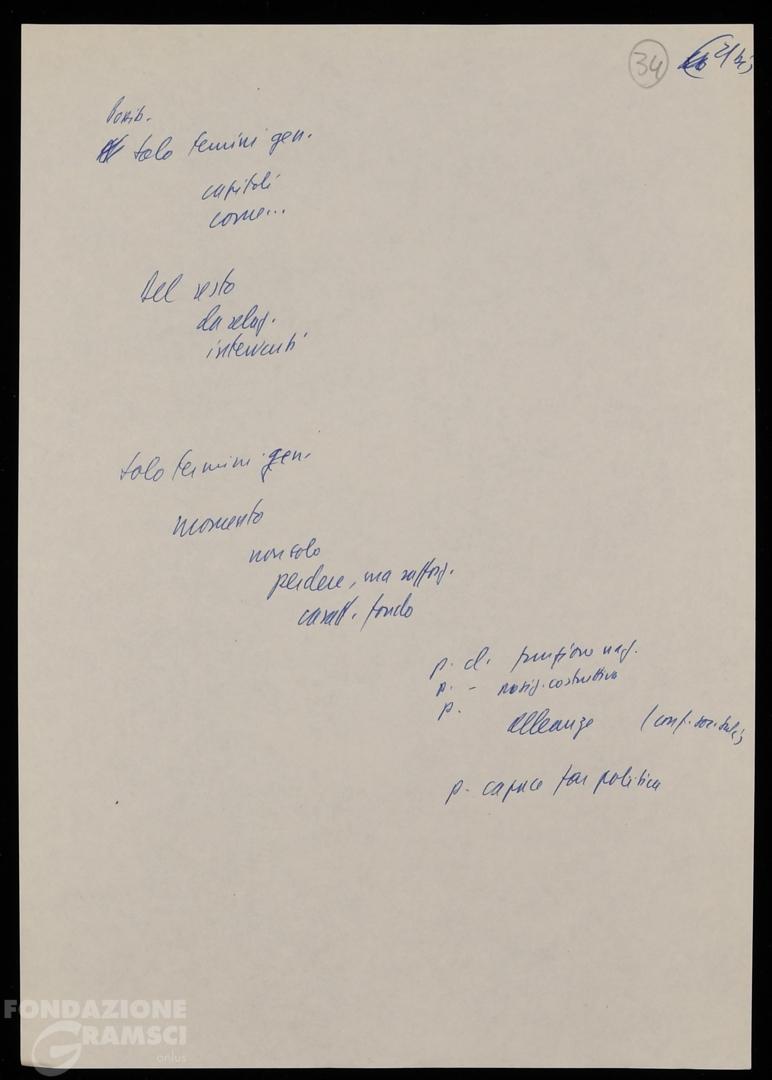 34 21 bis
Possib.
solo termini gen.
capitoli
come...
Del resto
da relaz.
interventi
solo termini gen.
momento
non solo
perdere, ma rafforz.
caratt. fondo
p. d. funzione naz.
p. - posiz. costruttiva
p.
alleanze (conf. sociali
p. capace far politica
FONDAZIONE
GRAMSCI
onlus